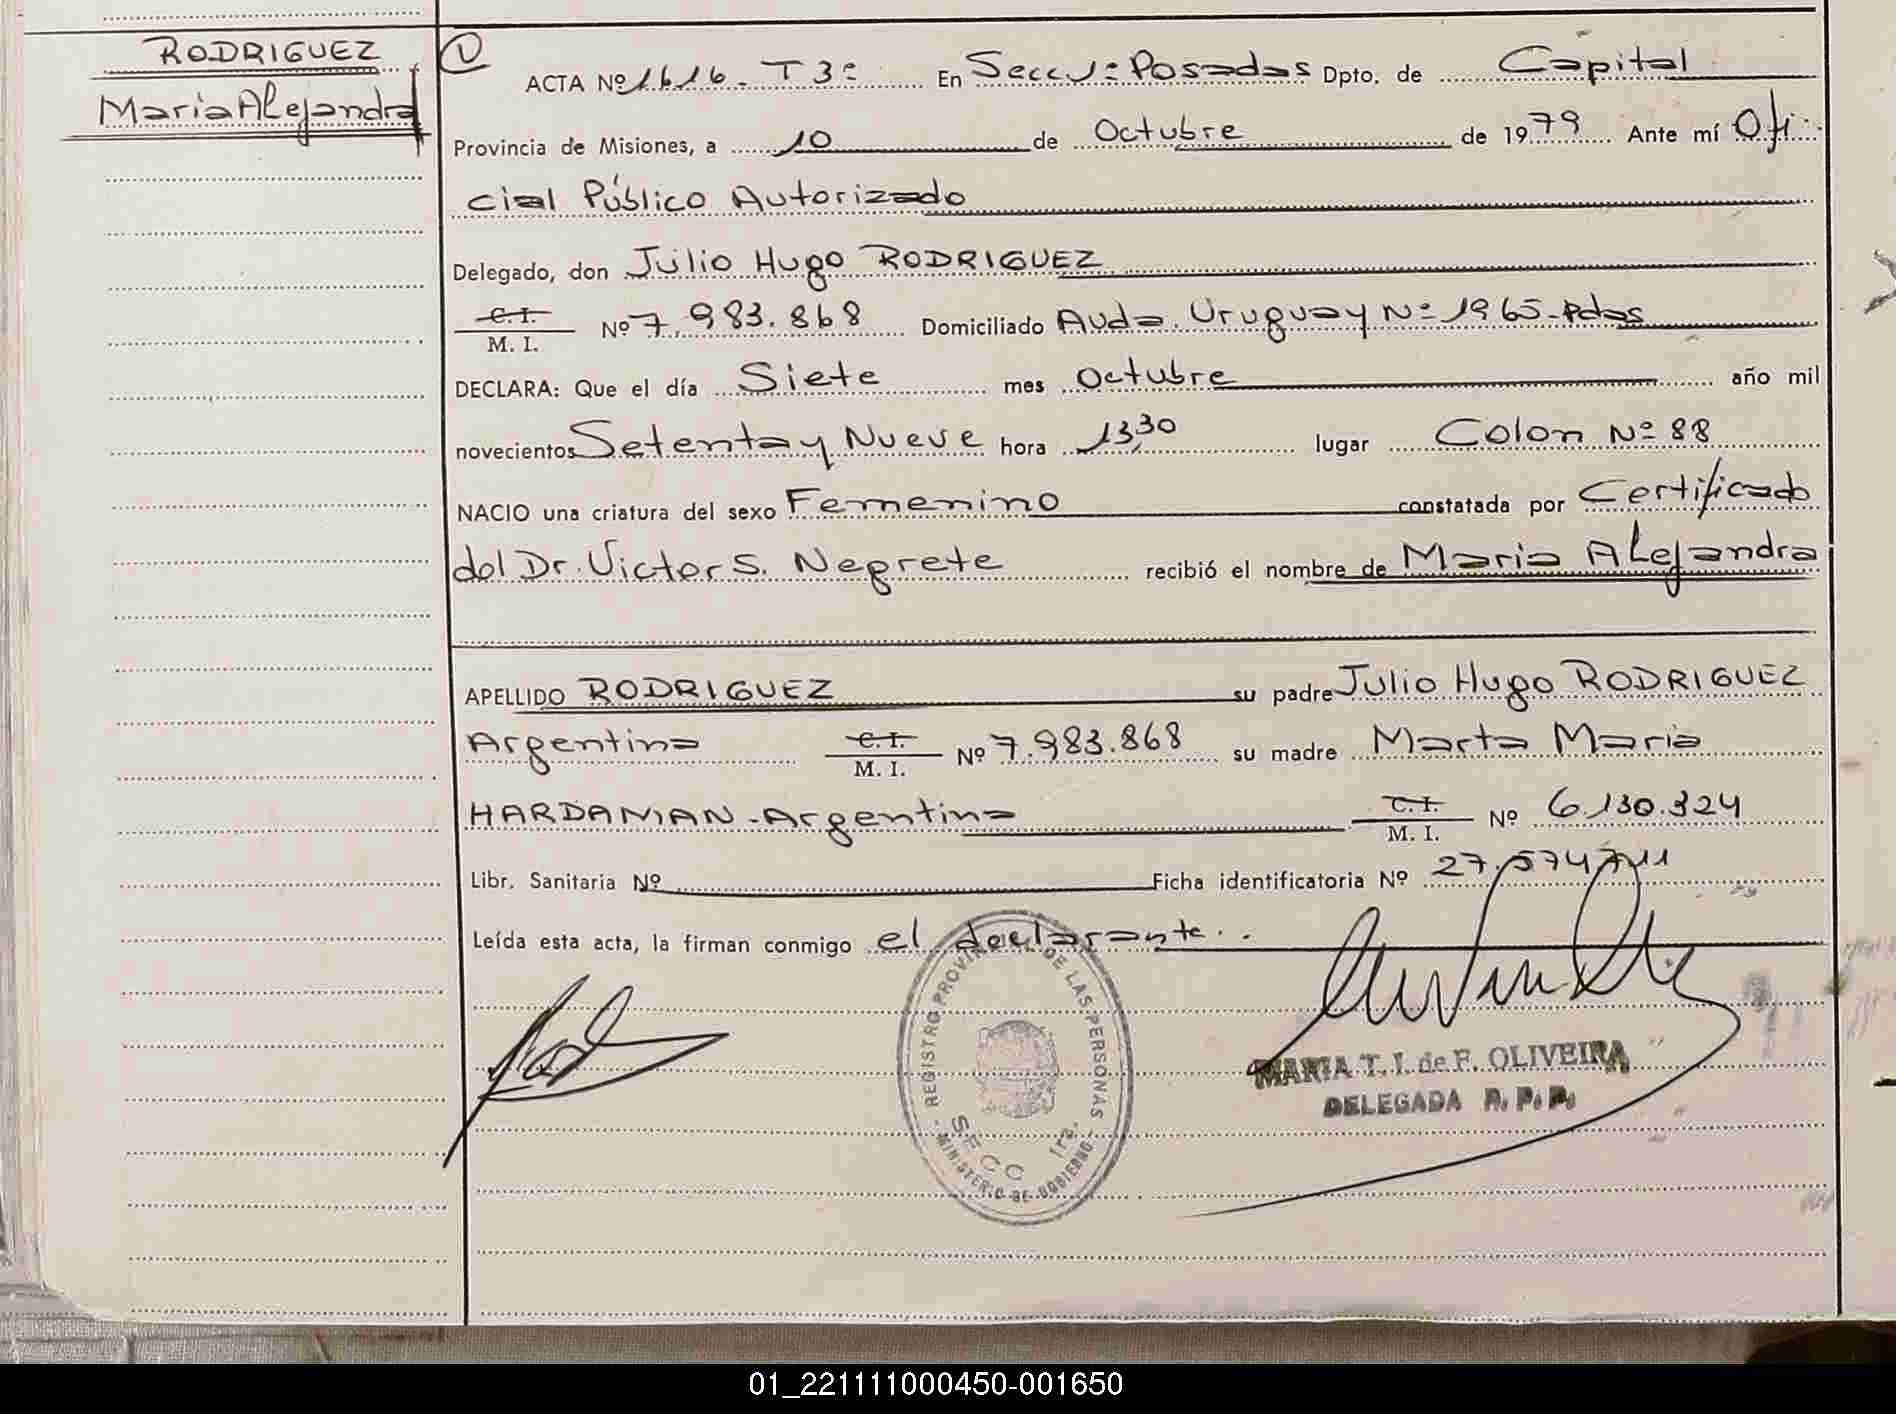 RODRIGUEZ
Maria Alejandra
1
ACTA Nº 1616 - T 3º En Secc 1º Posadas Dpto. de Capital
Provincia de Misiones, a 10 de Octubre de 1979 Ante mí Ofi-
cial Público Autorizado
Delegado, don Julio Hugo RODRIGUEZ
C. I.
M. I. Nº 7.983.868 Domiciliado Avda. Uruguay Nº 1965-Pdas
DECLARA: Que el día Siete mes Octubre año mil
novecientos Setenta y Nueve hora 13,30 lugar Colon Nº 88
NACIO una criatura del sexo Femenino constatada por Certificado
del Dr. Victor S. Negrete recibió el nombre de Maria Alejandra
APELLIDO RODRIGUEZ su padre Julio Hugo RODRIGUEZ
Argentina C. I.
M. I. Nº 7.983.868 su madre Marta Maria
HARDAMAN - Argentina C. I.
M. I. Nº 6.130.324
Libr. Sanitaria Nº Ficha identificatoria Nº 27.574.711
Leída esta acta, la firman conmigo el declarante..
REGISTRO PROVINCIAL DE LAS PERSONAS
SECC 1ra.
- MINISTERIO DE GOBIERNO -
MARIA T. I. de F. OLIVEIRA
DELEGADA R. P. P.
01_221111000450-001650